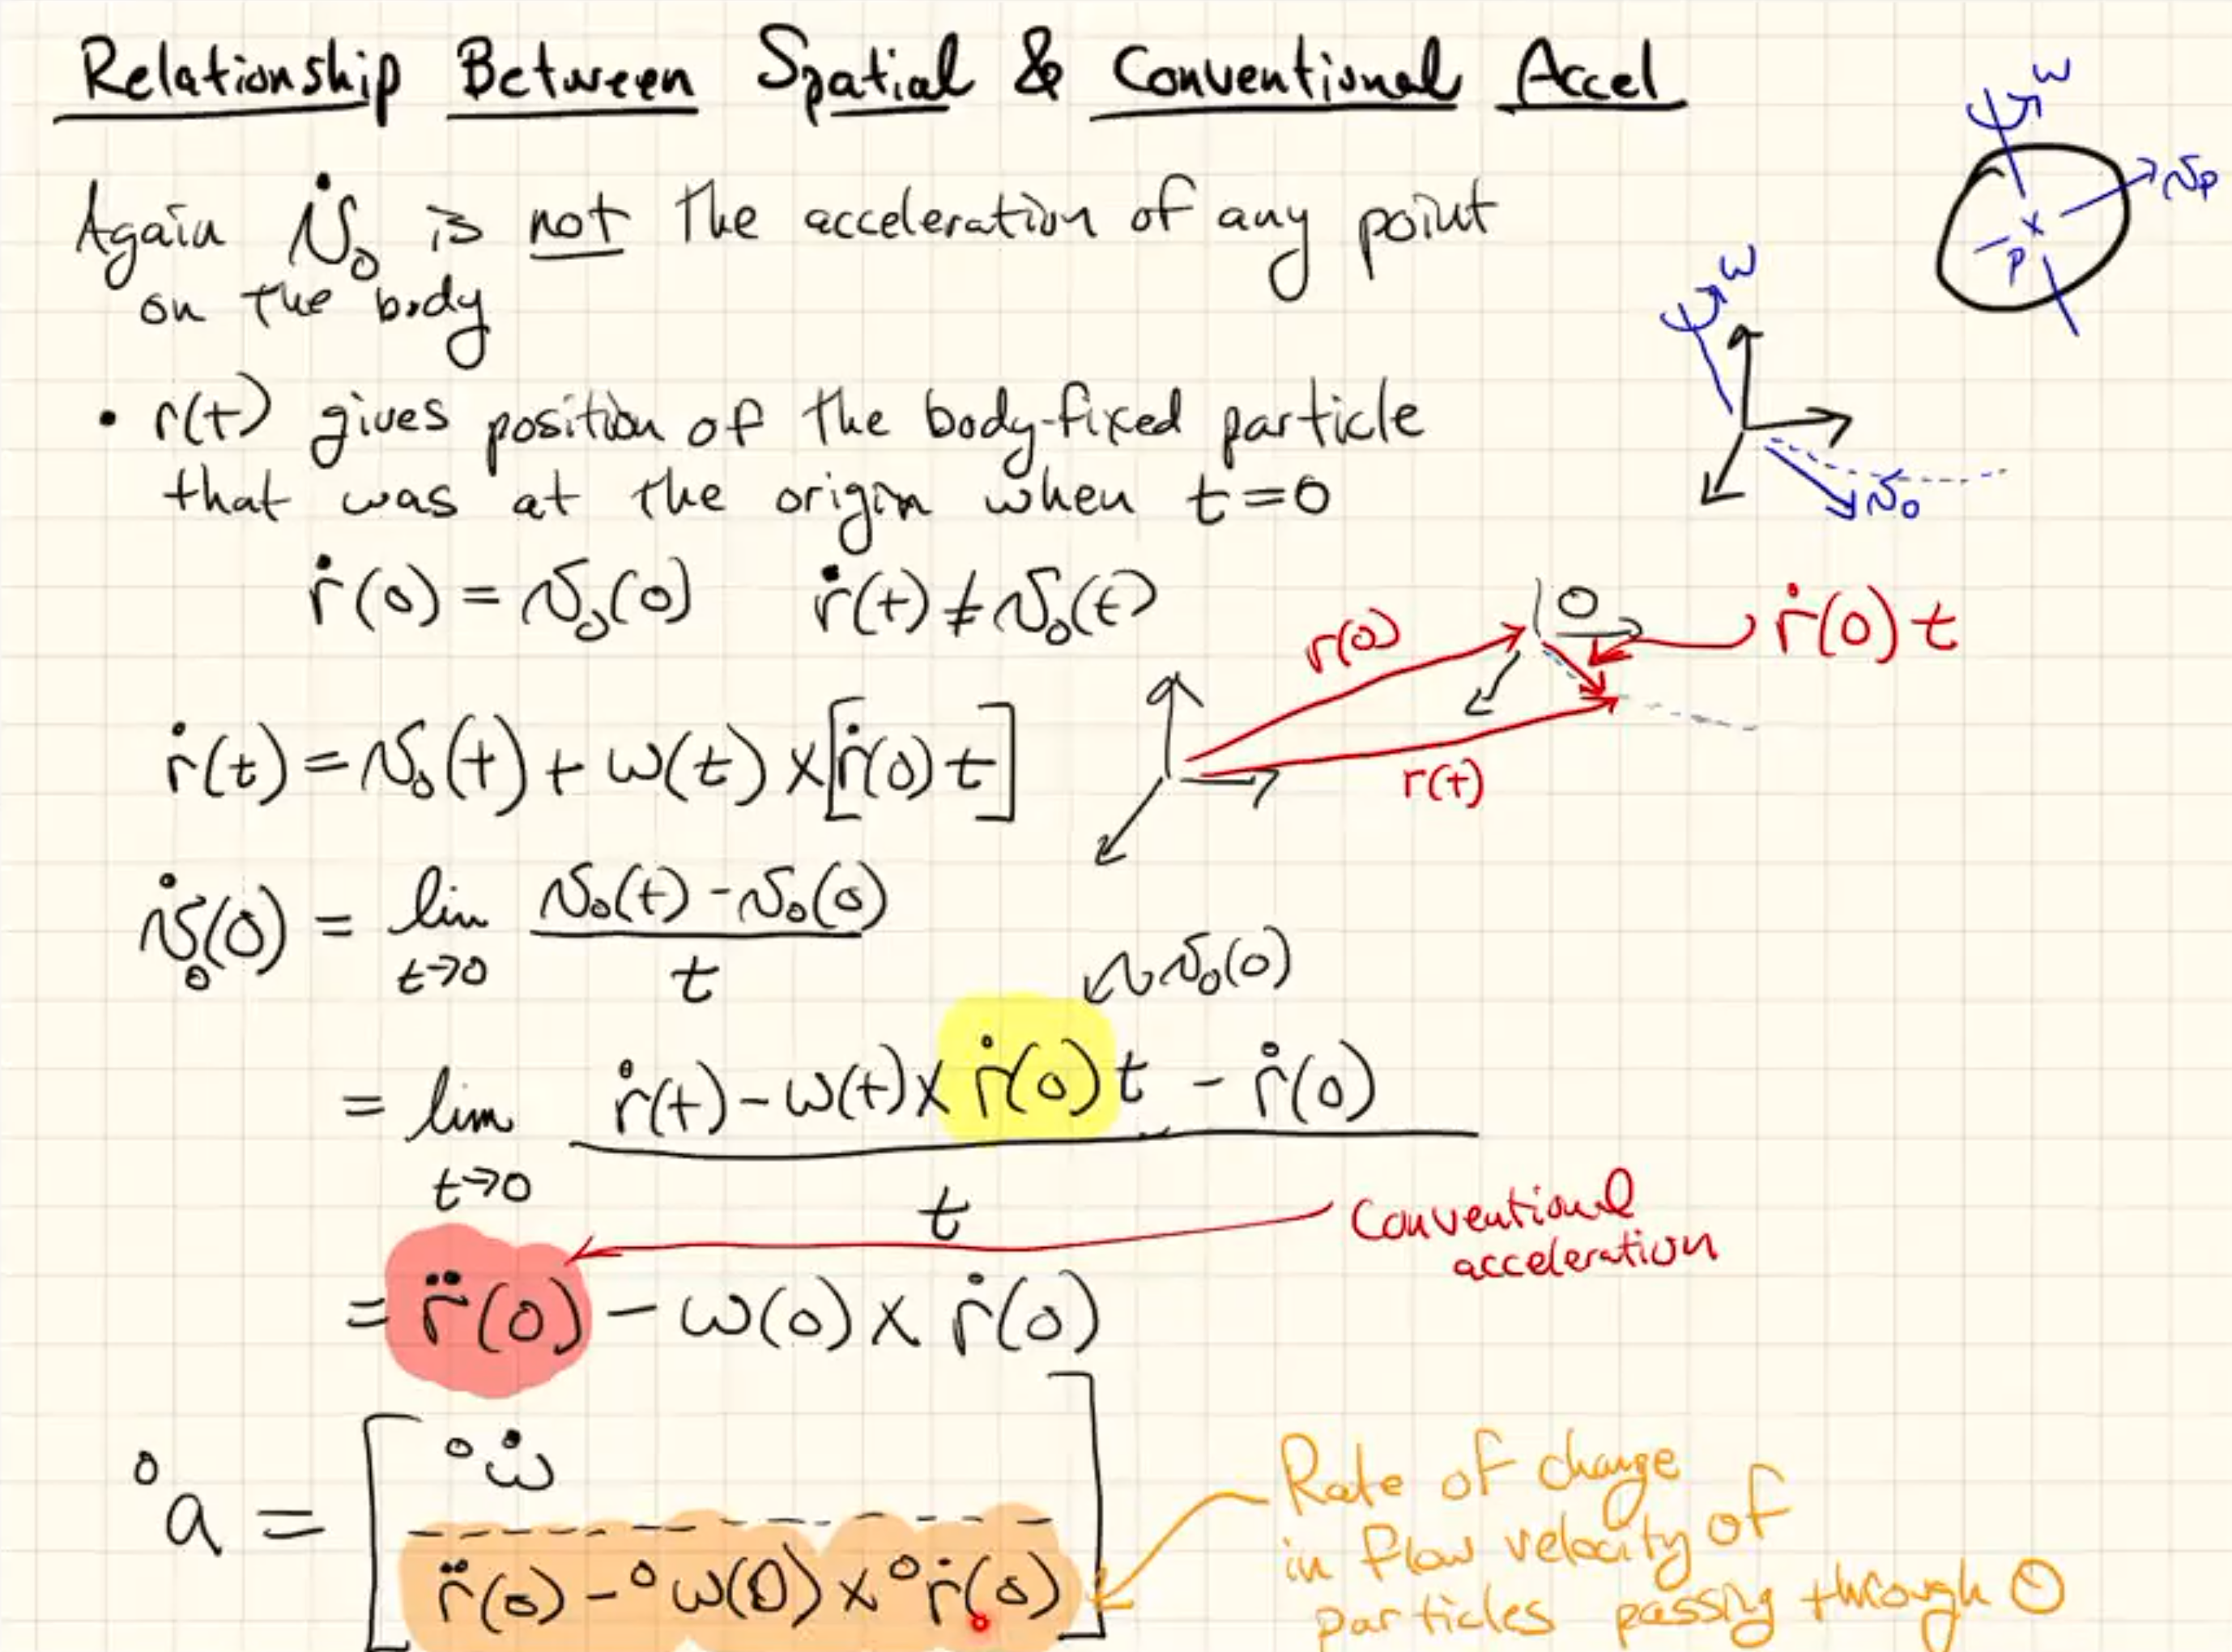 Relationship Between Spatial & Conventional Accel
Again v̇₀ is not the acceleration of any point
on the body
• r(t) gives position of the body-fixed particle
that was at the origin when t=0
ω
v_P
P
ω
v₀
ṙ(0) = v₀(0)   ṙ(t) ≠ v₀(t)
r(0)
O
ṙ(0) t
r(t)
ṙ(t) = v₀(t) + ω(t) × [ṙ(0) t]
v̇₀(0) = lim t→0 (v₀(t) - v₀(0)) / t
v₀(0)
= lim t→0 (ṙ(t) - ω(t) × ṙ(0) t - ṙ(0)) / t
Conventional
acceleration
= r̈(0) - ω(0) × ṙ(0)
⁰a = [ ⁰ω̇
r̈(0) - ⁰ω(0) × ⁰ṙ(0) ]
Rate of change
in flow velocity of
particles passing through O